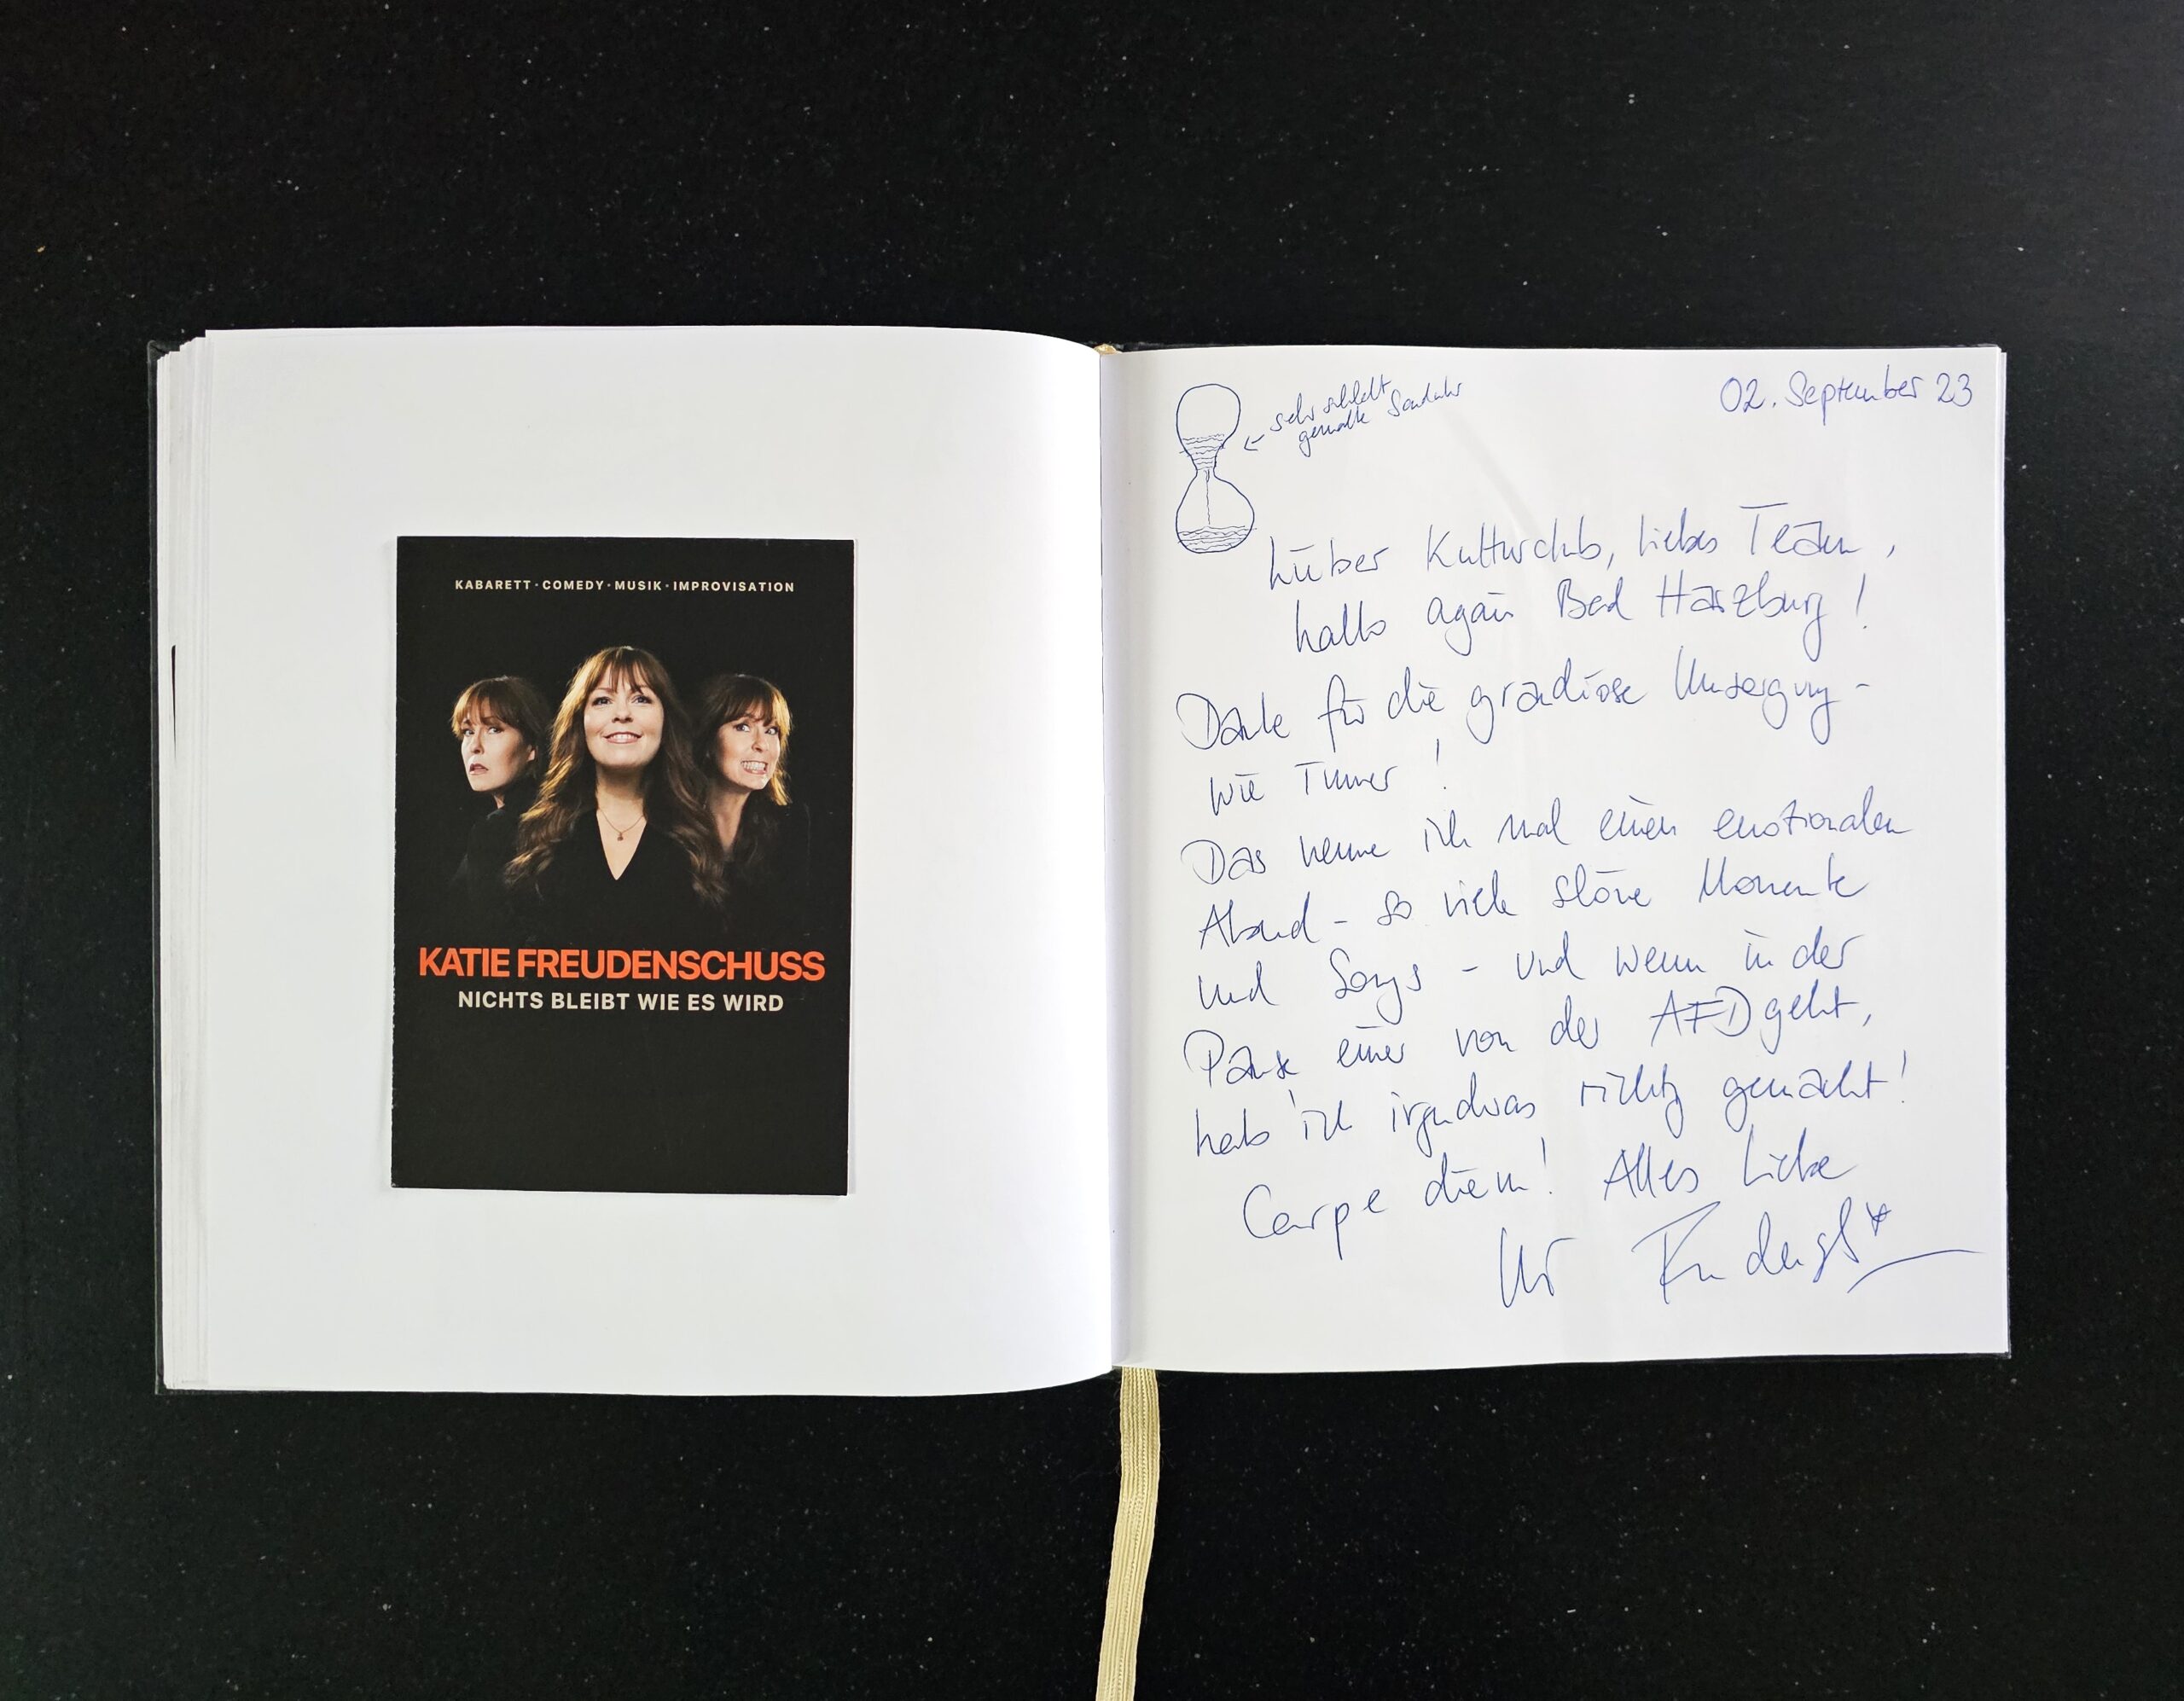 KABARETT · COMEDY · MUSIK · IMPROVISATION
KATIE FREUDENSCHUSS
NICHTS BLEIBT WIE ES WIRD
02. September 23
← sehr schlecht
gemalte Sanduhr
Lieber Kulturclub, liebes Team,
hallo again Bad Harzburg!
Danke für die grandiose Umsorgung -
wie immer!
Das nenne ich mal einen emotionalen
Abend - so viele schöne Momente
und Songs - und wenn in der
Pause einer von der AFD geht,
hab' ich irgendwas richtig gemacht!
Carpe diem! Alles Liebe